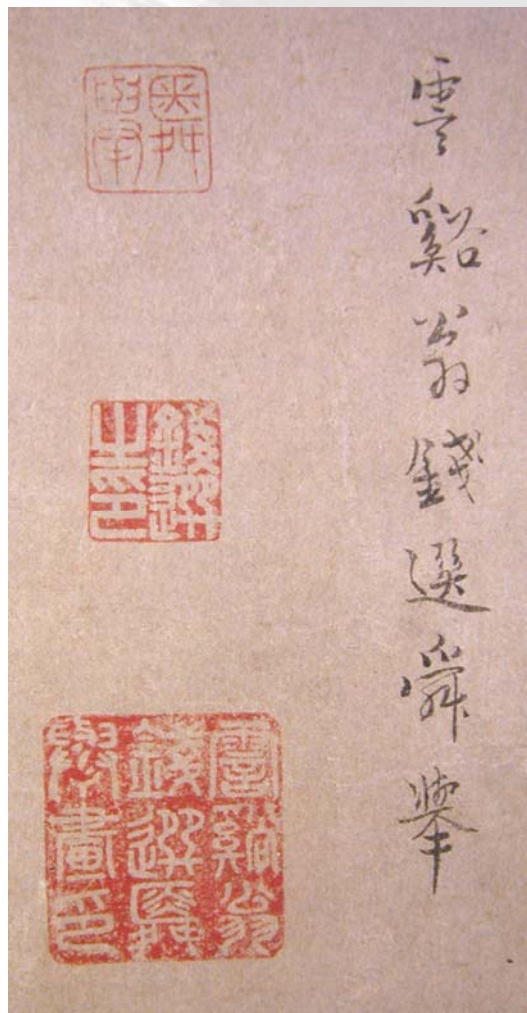 霅谿翁錢選舜舉
舜舉
錢選之印
霅谿翁錢選舜舉畫印